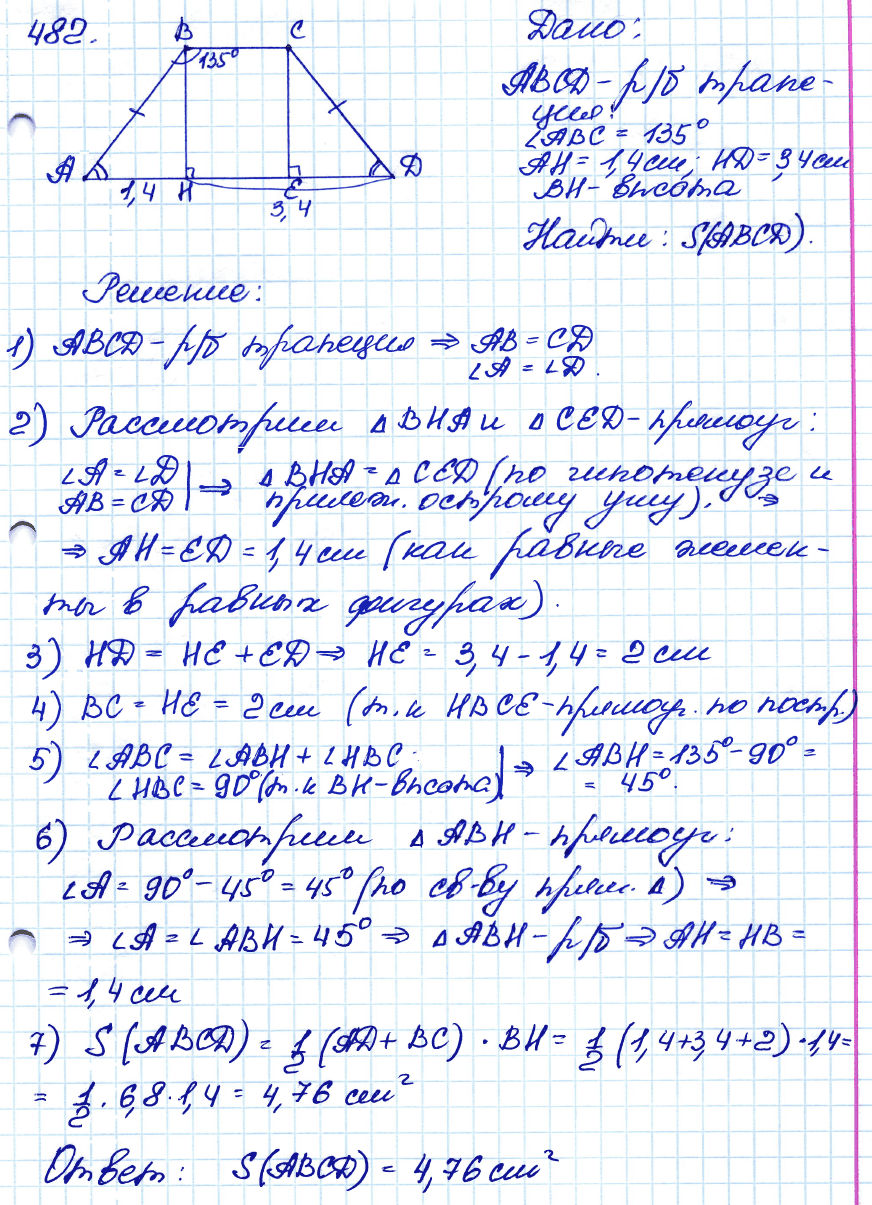 482.
B C
135°
A 1,4 H E D
3,4
Дано:
ABCD - р/б трапе-
ция:
∠ABC = 135°
AH = 1,4 см; HD = 3,4 см
BH - высота
Найти: S(ABCD).
Решение:
1) ABCD - р/б трапеция ⇒ AB = CD
∠A = ∠D.
2) Рассмотрим △BHA и △CED - прямоуг:
∠A = ∠D | ⇒ △BHA = △CED (по гипотенузе и
AB = CD | прилеж. острому углу). ⇒
⇒ AH = ED = 1,4 см (как равные элемен-
ты в равных фигурах).
3) HD = HE + ED ⇒ HE = 3,4 - 1,4 = 2 см
4) BC = HE = 2 см (т.к HBCE - прямоуг. по постр.)
5) ∠ABC = ∠ABH + ∠HBC. | ⇒ ∠ABH = 135° - 90° =
∠HBC = 90° (т.к BH - высота) | = 45°.
6) Рассмотрим △ABH - прямоуг:
∠A = 90° - 45° = 45° (по св-ву прям. △) ⇒
⇒ ∠A = ∠ABH = 45° ⇒ △ABH - р/б ⇒ AH = HB =
= 1,4 см
7) S(ABCD) = 1/2 (AD + BC) · BH = 1/2 (1,4 + 3,4 + 2) · 1,4 =
= 1/2 · 6,8 · 1,4 = 4,76 см²
Ответ: S(ABCD) = 4,76 см²